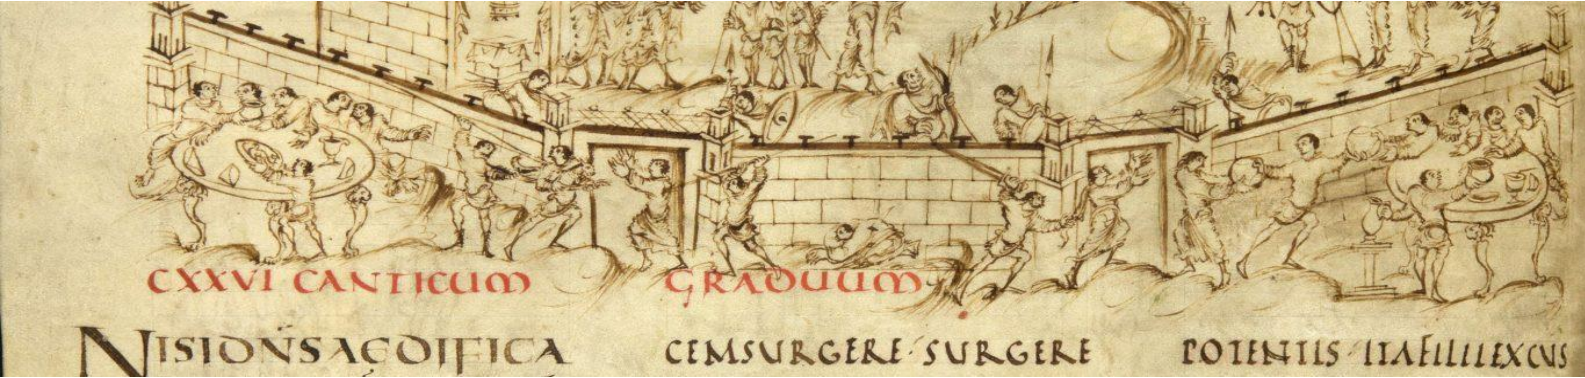 CXXVI CANTICUM GRADUUM
NISIDN̄SAEDIFICA CEMSURGERE·SURGERE POTENTIS·ITAFILIIEXCUS